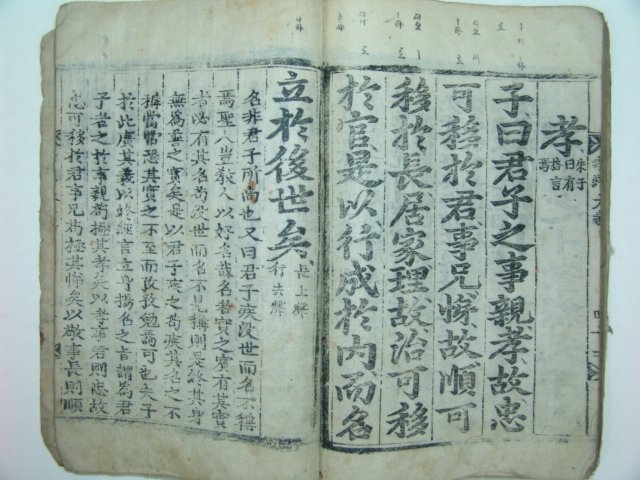 孝 朱子曰有格言焉
子曰君子之事親孝故忠
可移於君事兄悌故順可
移於長居家理故治可移
於官是以行成於內而名
立於後世矣 長上聲行去聲
名非君子所尚也又曰君子疾沒世而名不稱
焉聖人豈敎人以好名哉名者實之賓有其實
者必有其名苟沒世而名不見稱則是終其身
無爲善之實矣是以君子疾之苟疾其名之不
稱當常恐其實之不至而孜孜勉焉可也夫子
於此廣其義以終經言立身揚名之旨謂爲君
子者之於事親苟極其孝矣以孝事君則忠故
忠可移於君事兄苟極其悌矣以敬事長則順